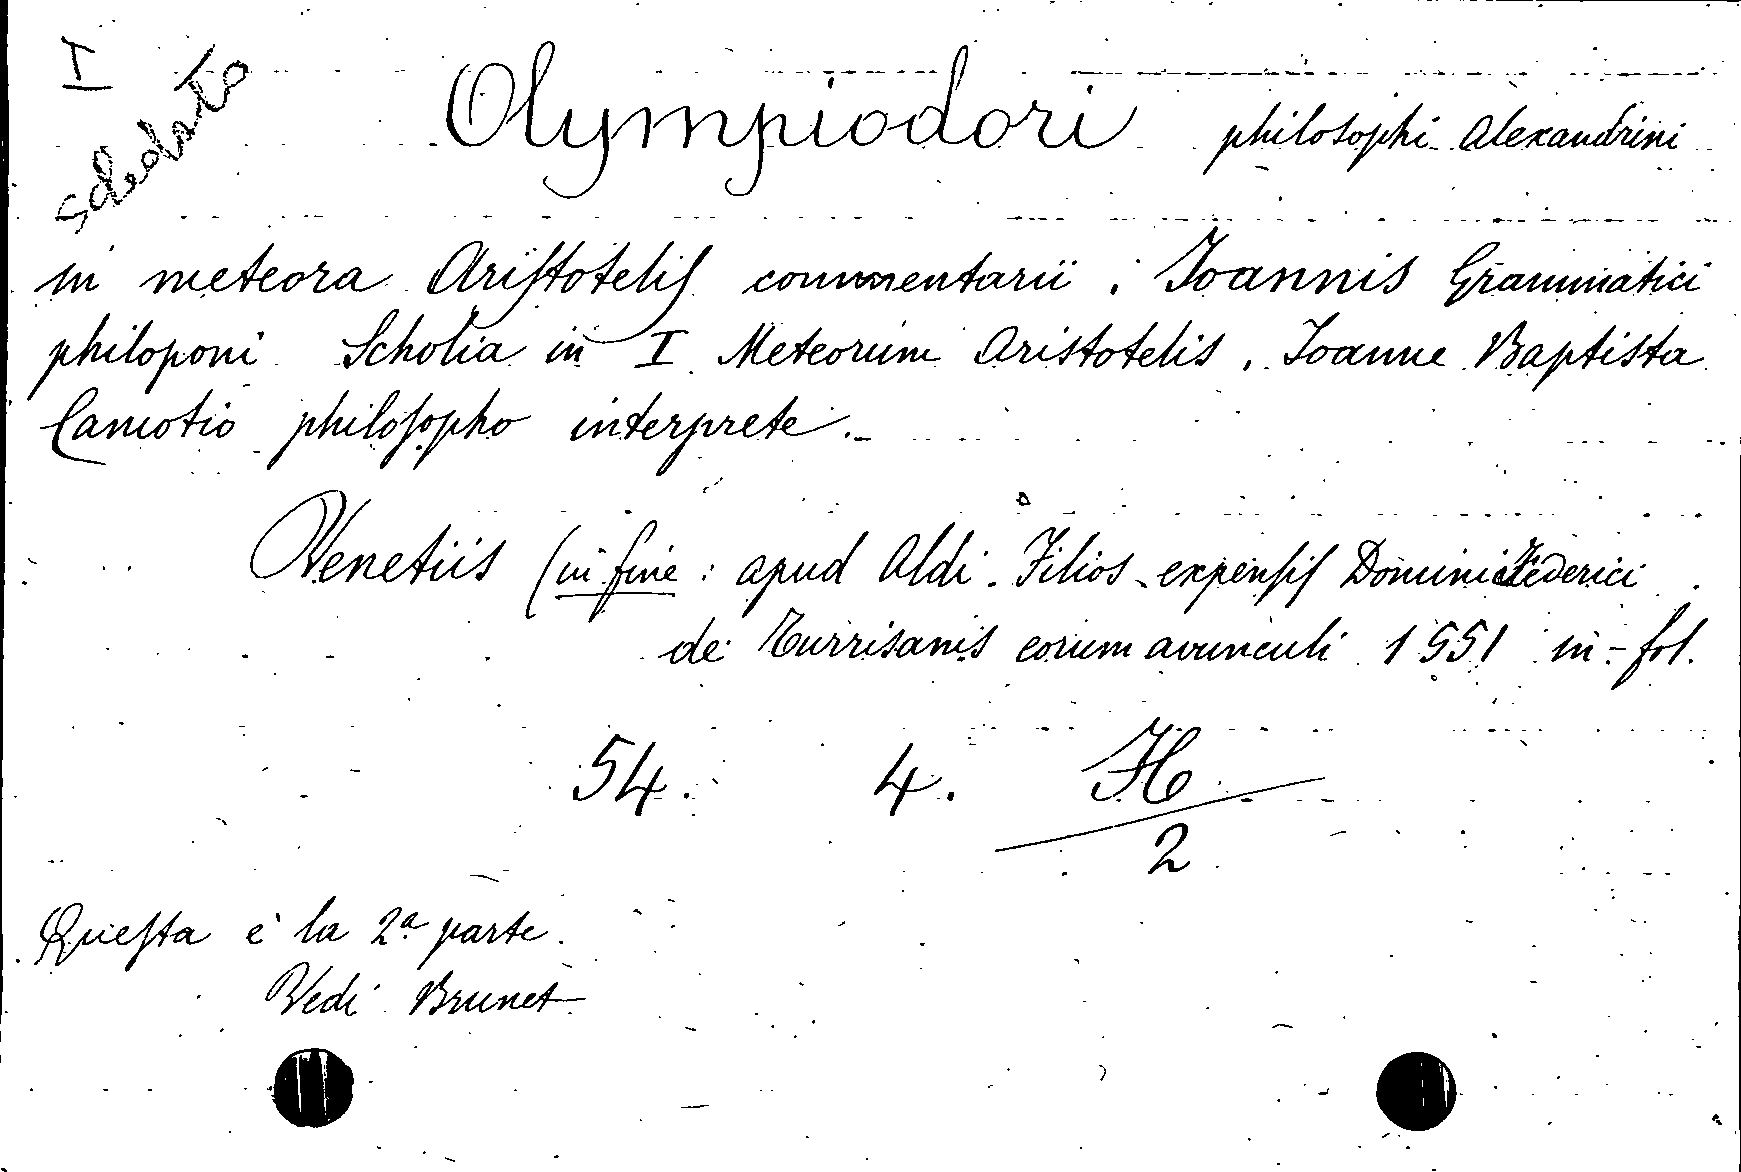 I
schedato
Olympiodori philosophi Alexandrini
in meteora Aristotelis commentarii. Joannis Grammatici
philoponi Scholia in I Meteorum Aristotelis. Joanne Baptista
Camotio philosopho interprete.
Venetiis (in fine: apud Aldi Filios expensis Dominici Federici
de Turrisanis eorum avunculi 1551 in-fol.
54. 4. H
2
Questa è la 2ª parte.
Vedi Brunet